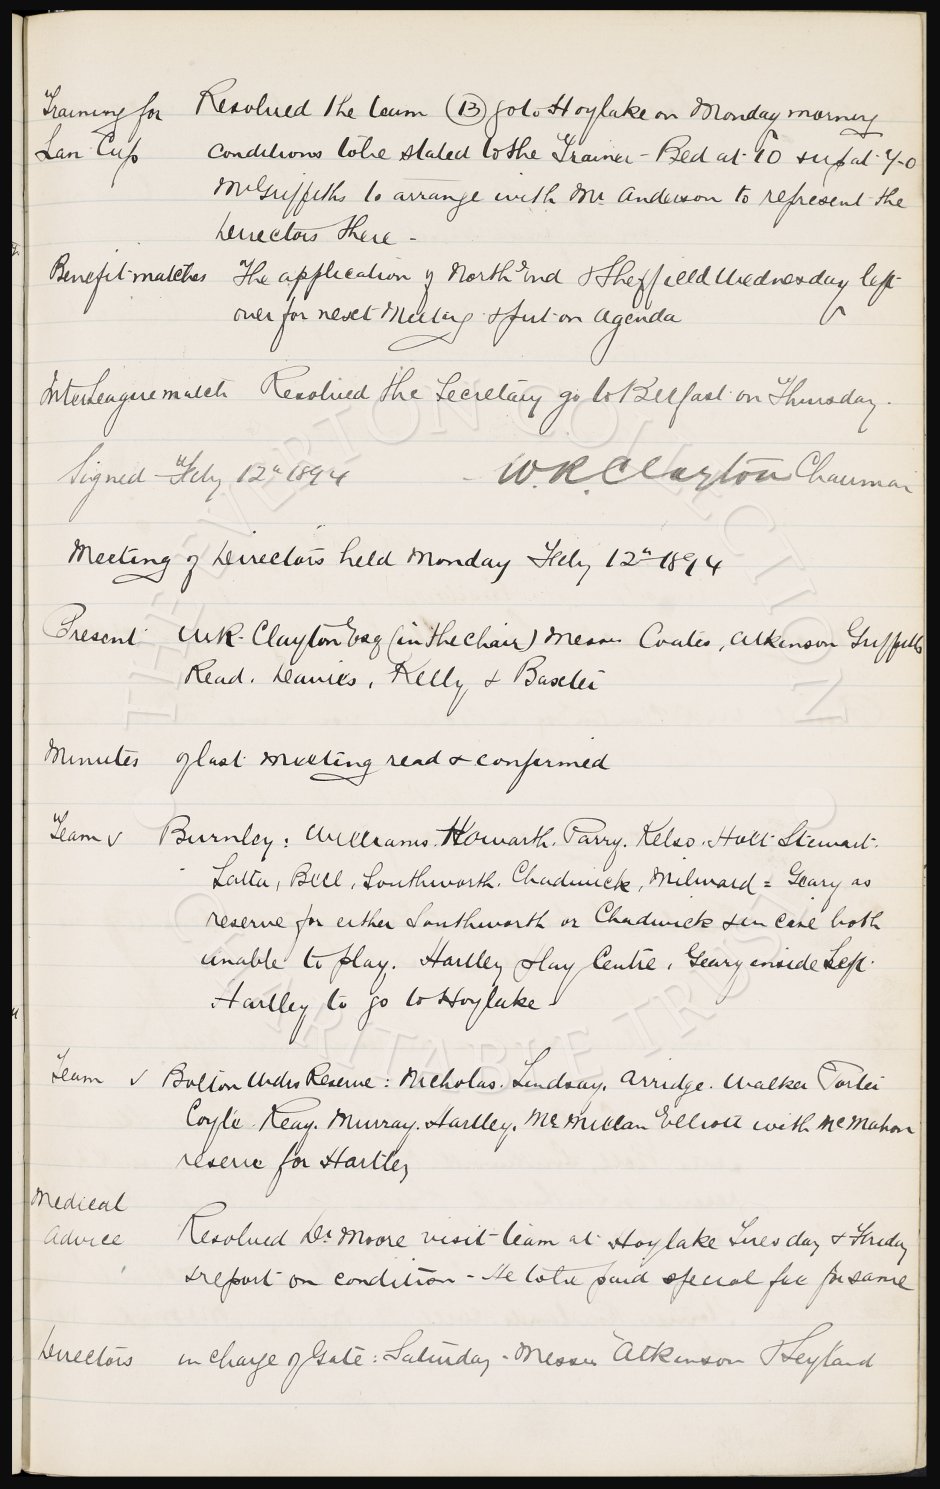 Training for Resolved the team (13) go to Hoylake on Monday morning
Lan Cup conditions to be stated to the Trainer - Bed at 10 & up at 7-0
Mr Griffiths to arrange with Mr Anderson to represent the
Directors there -
Benefit matches The application of North End & Sheffield Wednesday left
over for next Meeting & put on Agenda
InterLeague match Resolved the Secretary go to Belfast on Thursday.
Signed - Feby 12th 1894 - W.R. Clayton Chairman
Meeting of Directors held Monday Feby 12th 1894
Present W.R. Clayton Esq (in the chair) Messrs Coates, Atkinson Griffiths
Read. Davies, Kelly & Baxter
Minutes of last meeting read & confirmed
Team v Burnley: Williams. Howarth. Parry. Kelso. Holt Stewart.
Latta, Bell, Southworth. Chadwick, Milward = Geary as
reserve for either Southworth or Chadwick & in case both
unable to play. Hartley play Centre, Geary inside Left.
Hartley to go to Hoylake
Team v Bolton Wdrs Reserve: Nicholas. Lindsay. Arridge. Walker Porter
Coyle. Reay. Murray. Hartley. McMillan Elliott with McMahon
reserve for Hartley
Medical
Advice Resolved Dr Moore visit team at Hoylake Tuesday & Friday
& report on condition - He to be paid special fee for same
Directors in charge of Gate: Saturday - Messrs Atkinson & Leyland
THE EVERTON COLLECTION
CHARITABLE TRUST